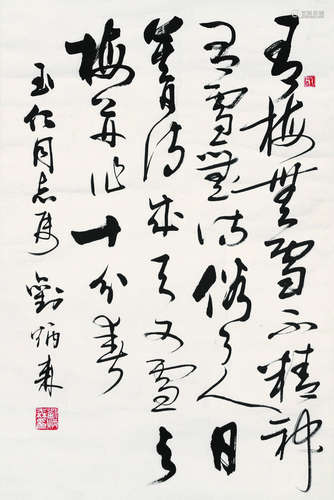 有梅無雪不精神
有雪無詩俗了人日
暮詩成天又雪与
梅并作十分春
玉仁同志属 劉炳森